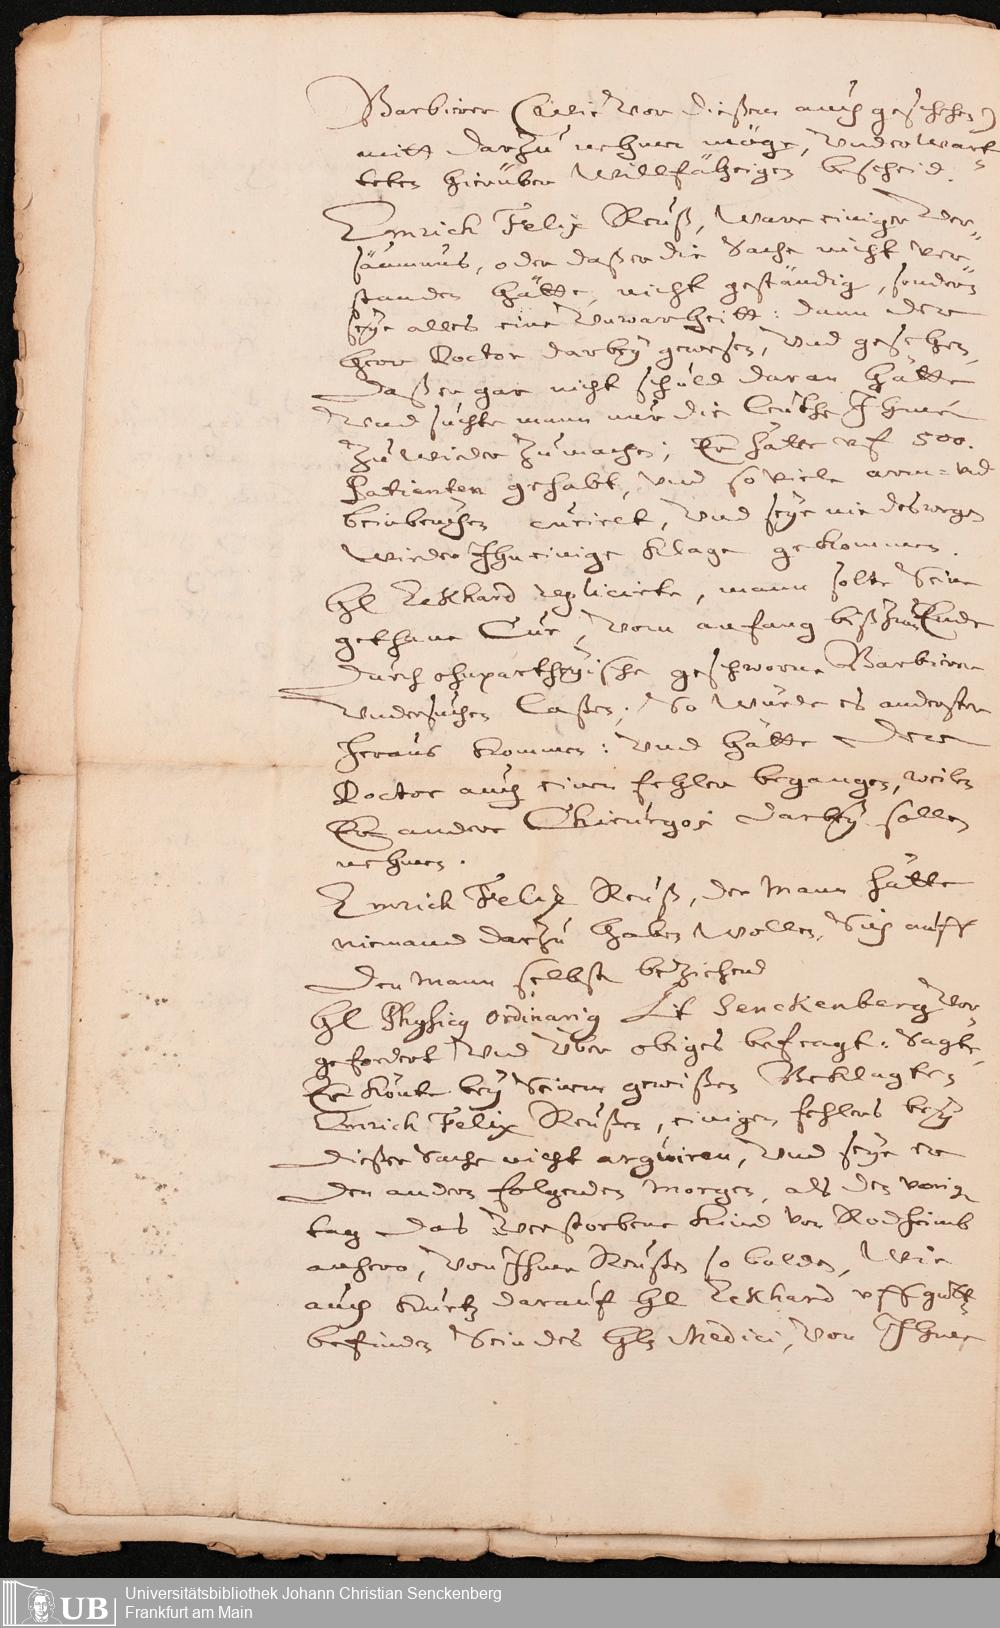 Barbierer (wie vor dießem auch geschehen)
mitt darzu nehmen möge, und erwart
teten hierüber willfährigen bescheid.
Emrich Felix Reuß, ware einiger Ver„
säumnus, oder daß er die Sache nicht ver„
standen hätte, nicht geständig, sondern
seye alles eine Unwarheitt: dann dere
herr Doctor darbey gewesen, und gesehen,
daß er gar nicht schuld daran hätte
und suchte mann nur die leuthe Ihme
zu wieder zu machen; Er hätte uf 500.
Patienten gehabt, und so viele arm= und
beinbrüchen curirt, und seye nie deswegen
wieder Ihn einige Klage gekommen.
Hl Eckhard replicirte, mann solte Seine
gethane Cur, vom anfang biß zum Ende
durch ohnpartheyische geschworne Barbierer
undersuchen laßen; So würde es anderster
heraus kommen: und hätte dere
Doctor auch einen fehler begangen, weilen
Er andere Chirurgos darbey sollen
nehmen.
Emrich Felix Reuß, der Mann hätte
niemand darzu haben wollen, Sich auff
den Mann selbste beziehend
Hl Physicq Ordinariq Lt Senckenberg vor„
gefordert und über obiges befragt: Sagte,
Er könte bey Seinem gewißen Beklagten
Emrich Felix Reußen, einigen fehlers bey
dießer Sache nicht arguiren, und seye er
den andern folgenden Morgen, als den vorig
tag das verstorbene Kind von Rodheimb
anhero, von Ihme Reußen so balden, wie
auch kurtz darauf Hl Eckhard uff gutt
befinden Sein des Hln Medici, von Ihme
UB
Universitätsbibliothek Johann Christian Senckenberg
Frankfurt am Main